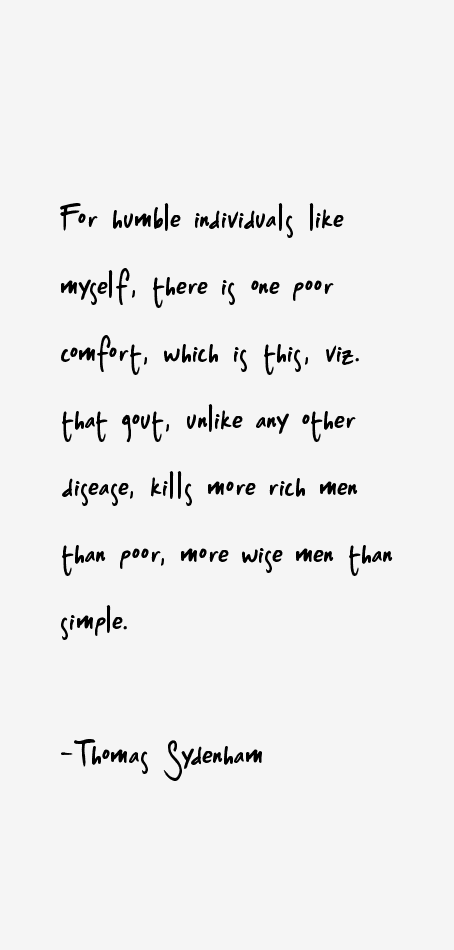 For humble individuals like
myself, there is one poor
comfort, which is this, viz.
that gout, unlike any other
disease, kills more rich men
than poor, more wise men than
simple.
-Thomas Sydenham